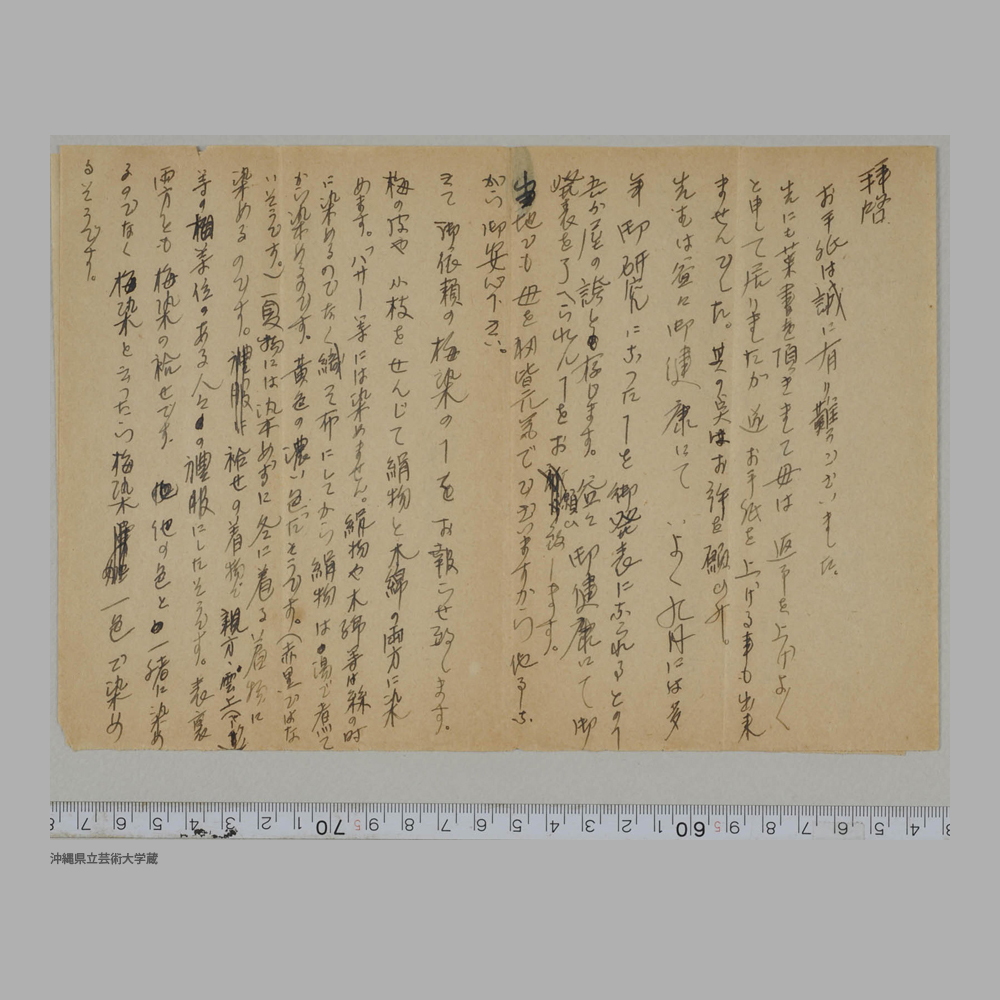 拝啓
お手紙は誠に有り難うございました。
先にも葉書を頂きまして母は返事を上げよく
と申して居りましたが遂お手紙を上げる事も出来
ませんでした。其の実はお許を願ひ
先生は益々御健康にて いよく九月には多
年御研究になったことを御発表になられるとのこと
吾が屋の誇とも存じます。益々御健康にて御
発表を了へられんことをお願ひ致します。
当地でも母を初皆元気でございますから
から御安心下さい。
さて御依頼の梅染のことをお報らせ致します。
梅の皮や小枝をせんじて絹物と木綿の両方に染
めます。バサー等には染めません。絹物や木綿等は絲の時
に染めるのでなく織って布にしてから絹物は湯で煮て
から染めるさうです。黄色の濃い色だそうです。(赤黒ではな
いそうです。)夏物には染めずに冬に着る着物に
染めるのです。礼服は袷せの着物で親方、雲上
等の相等位のある人々の禮服にしたそうです。表裏
両方とも梅染の袷せです。他の色と一緒に染め
るのでなく梅染と云ったら梅染一色で染め
るそうです。
8 7 6 5 4 3 2 1 70 9 8 7 6 5 4 3 2 1 60 9 8 7 6 5 4 3
沖縄県立芸術大学蔵